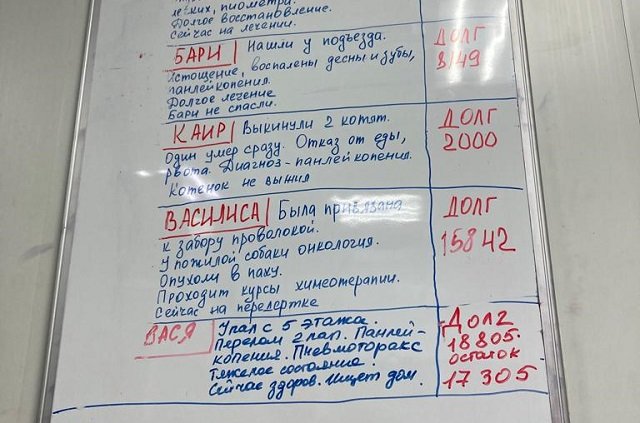 лёгких, пиометра.
Долгое восстановление.
Сейчас на лечении.
БАРИ Нашли у подъезда.
Истощение, воспалены десны и зубы,
панлейкопения.
Долгое лечение
Бари не спасли.
ДОЛГ
8149
КАИР Выкинули 2 котят.
Один умер сразу. Отказ от еды,
рвота. Диагноз-панлейкопения.
Котенок не выжил
ДОЛГ
2000
ВАСИЛИСА Была привязана
к забору проволокой.
У пожилой собаки онкология.
Опухоли в паху.
Проходит курсы химеотерапии.
Сейчас на передержке
ДОЛГ
15842
ВАСЯ Упал с 5 этажа.
Перелом 2 лап. Панлей-
копения. Пневмоторакс
Тяжелое состояние.
Сейчас здоров. Ищет дом.
Долг
18805.
остаток
17305